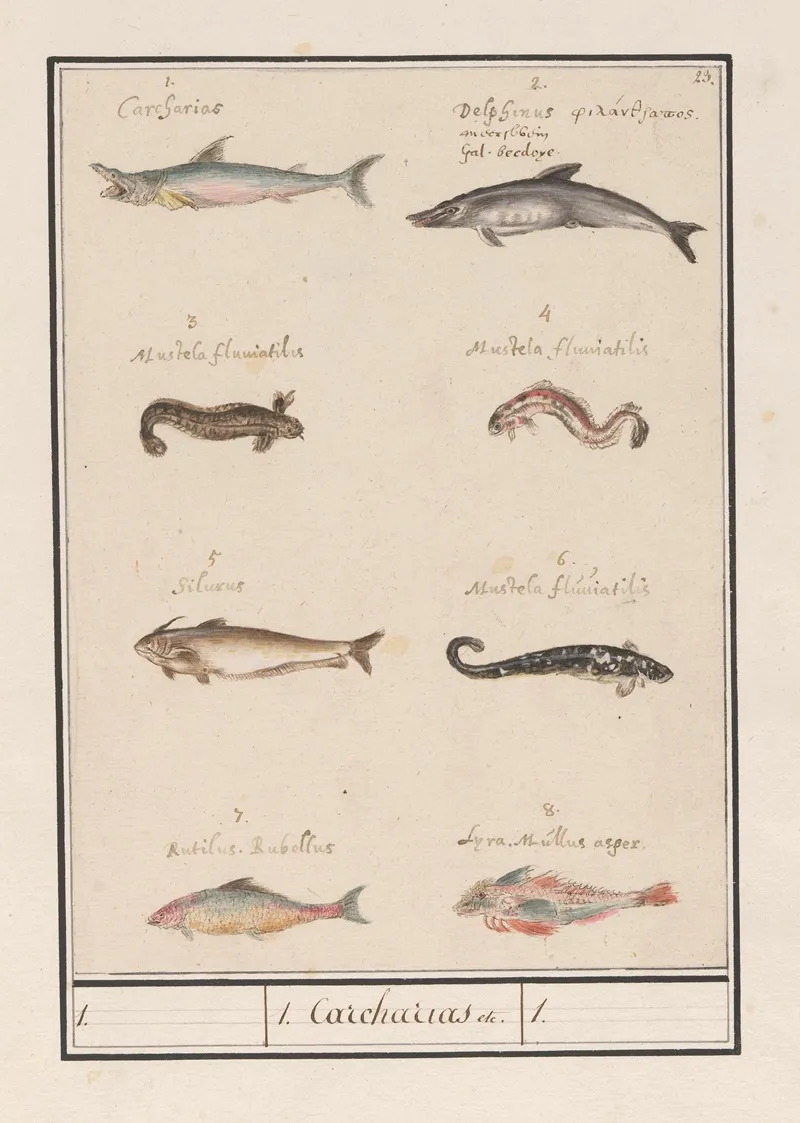 23.
1.
Carcharias
2.
Delphinus φιλάνθρωπος.
meerschwein
Gal. becdoye.
3
Mustela fluuiatilis
4
Mustela fluuiatilis
5
Silurus
6.
Mustela fluuiatilis
7.
Rutilus. Rubellus
8.
Lyra. Mullus asper.
1.
1. Carcharias etc.
1.